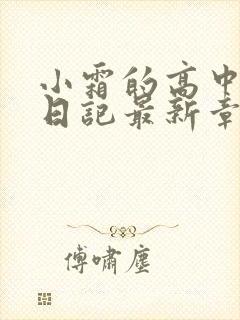 小霜的高中
日記最新章
傅嘯塵